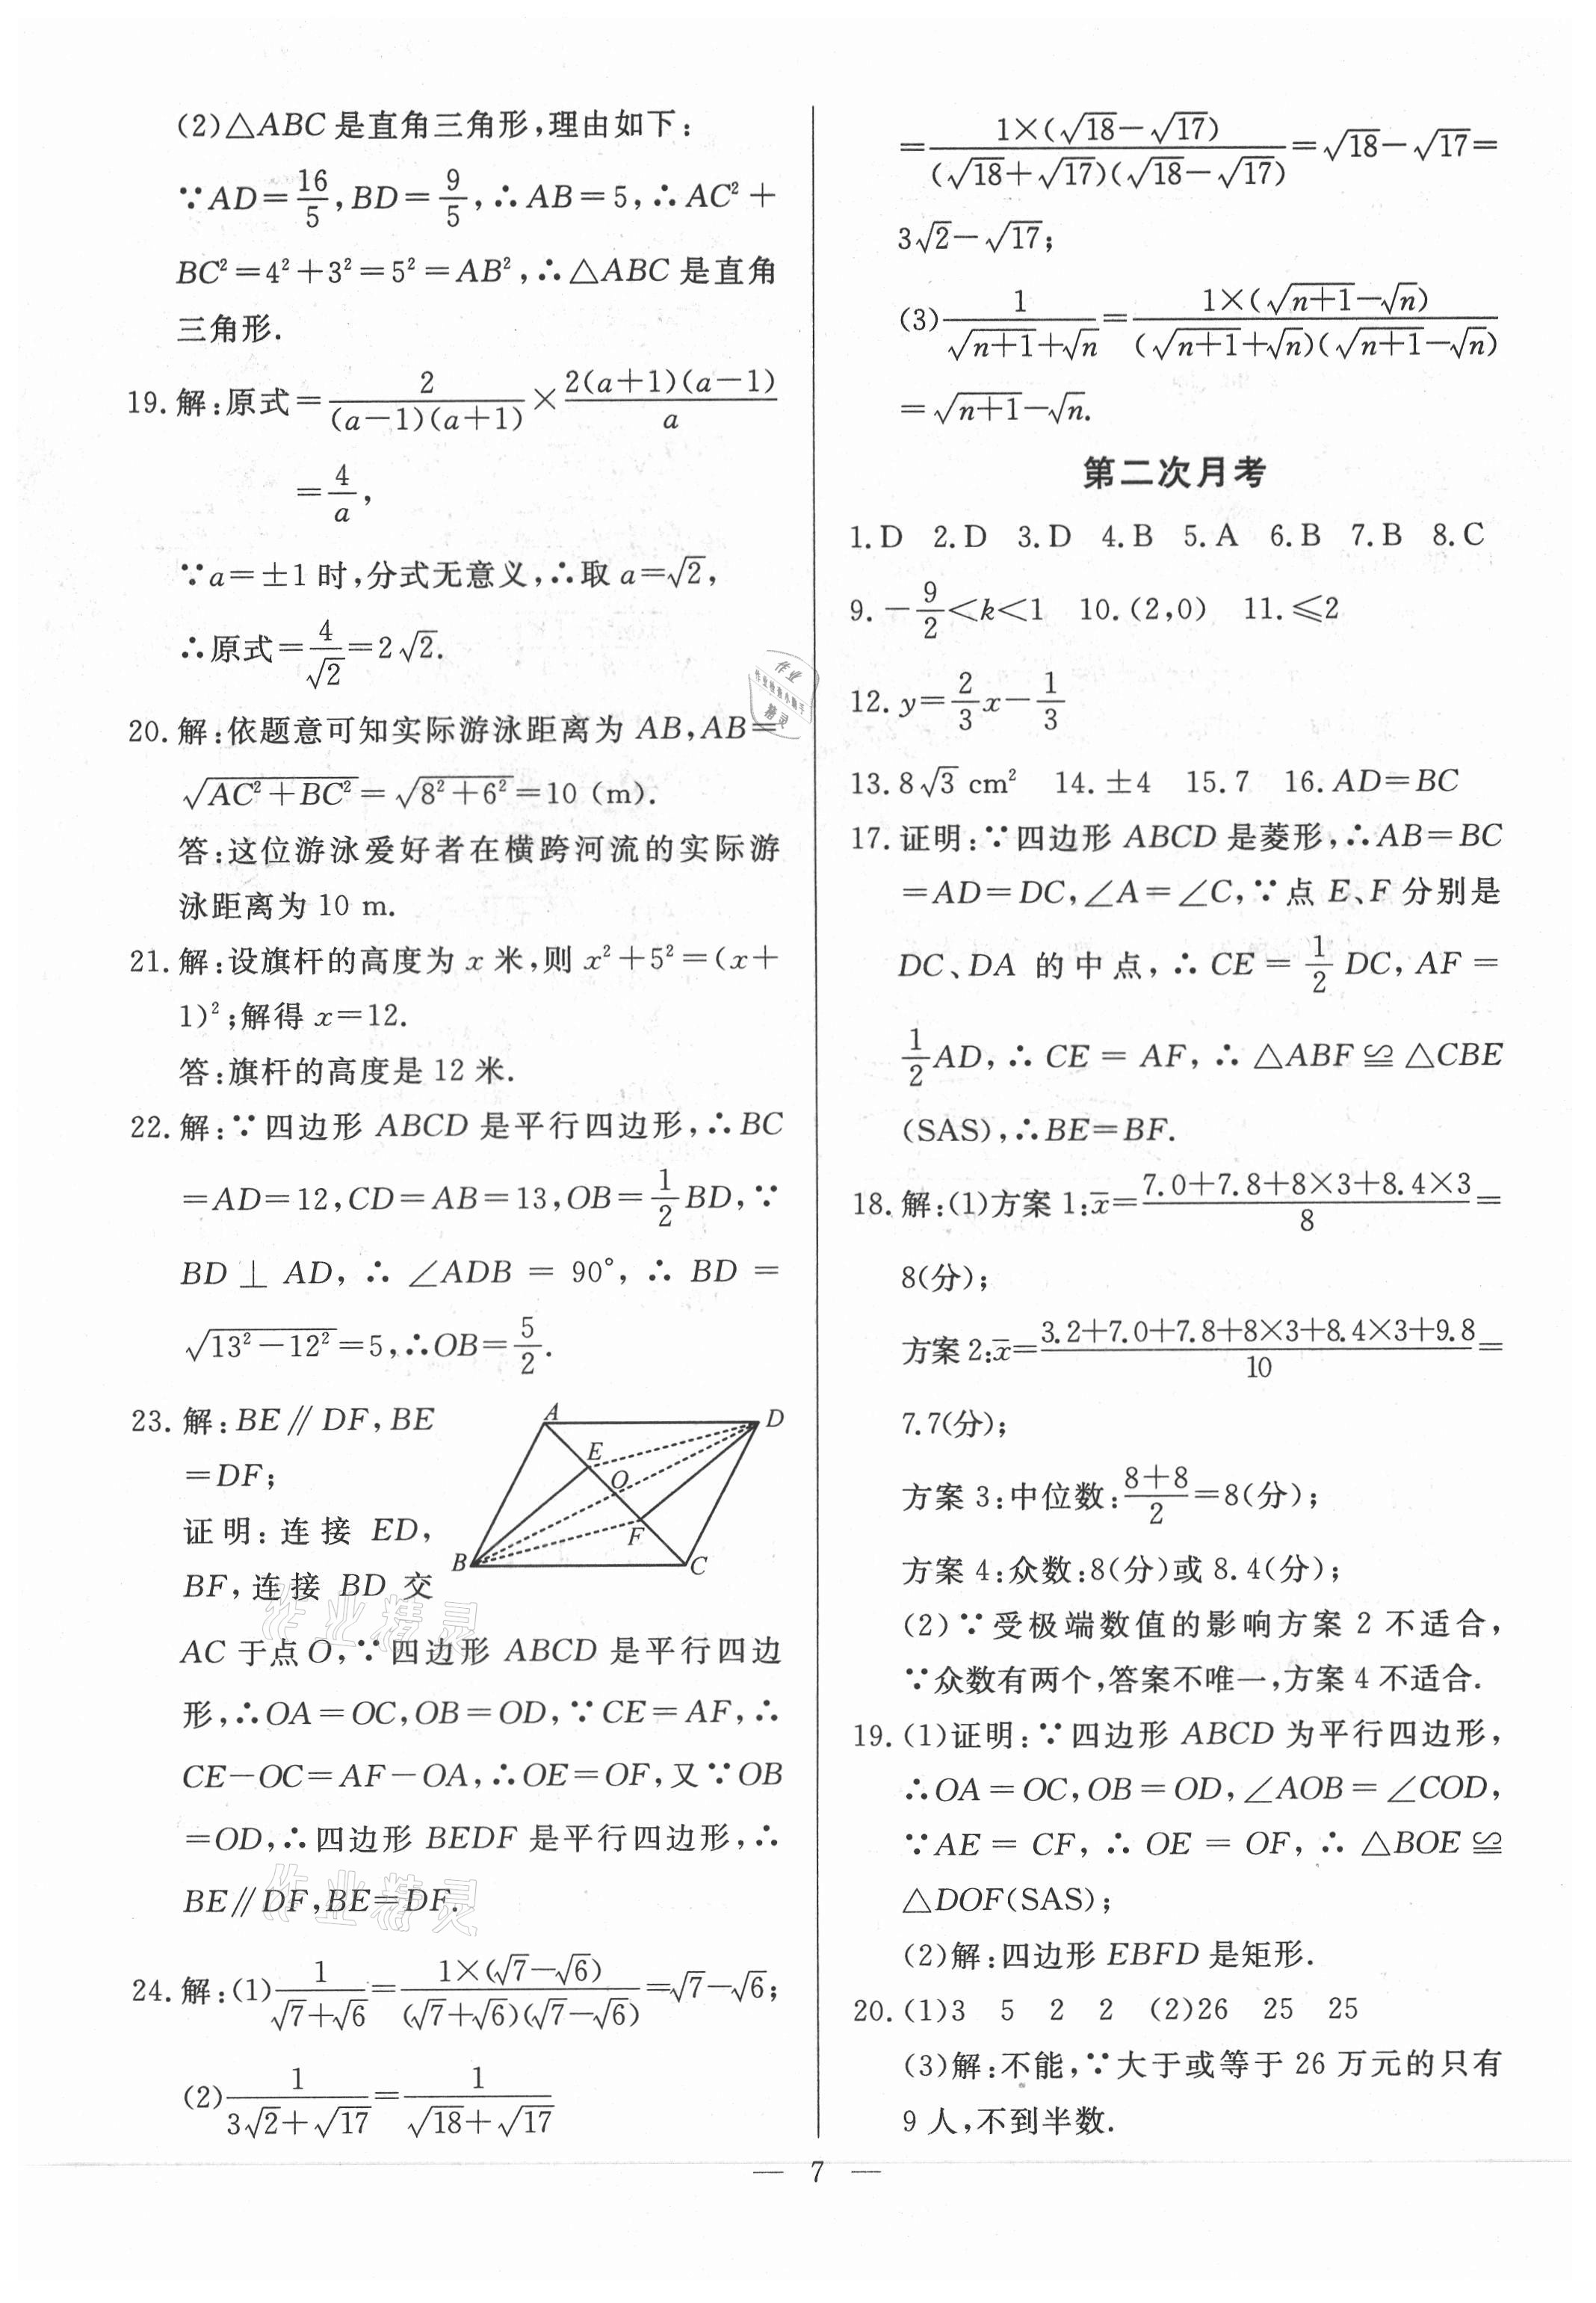 (2)△ABC是直角三角形,理由如下:
∵AD=16/5,BD=9/5,∴AB=5,∴AC²+
BC²=4²+3²=5²=AB²,∴△ABC是直角
三角形.
19.解:原式=2/((a-1)(a+1))×2(a+1)(a-1)/a
=4/a,
∵a=±1时,分式无意义,∴取a=√2,
∴原式=4/√2=2√2.
20.解:依题意可知实际游泳距离为AB,AB=
√(AC²+BC²)=√(8²+6²)=10(m).
答:这位游泳爱好者在横跨河流的实际游
泳距离为10 m.
21.解:设旗杆的高度为x米,则x²+5²=(x+
1)²;解得x=12.
答:旗杆的高度是12米.
22.解:∵四边形ABCD是平行四边形,∴BC
=AD=12,CD=AB=13,OB=1/2BD,∵
BD⊥AD,∴∠ADB=90°,∴BD=
√(13²-12²)=5,∴OB=5/2.
23.解:BE∥DF,BE
=DF;
证明:连接ED,
BF,连接BD交
A
D
E
O
F
B
C
AC于点O,∵四边形ABCD是平行四边
形,∴OA=OC,OB=OD,∵CE=AF,∴
CE-OC=AF-OA,∴OE=OF,又∵OB
=OD,∴四边形BEDF是平行四边形,∴
BE∥DF,BE=DF.
24.解:(1)1/(√7+√6)=1×(√7-√6)/((√7+√6)(√7-√6))=√7-√6;
(2)1/(3√2+√17)=1/(√18+√17)
=1×(√18-√17)/((√18+√17)(√18-√17))=√18-√17=
3√2-√17;
(3)1/(√(n+1)+√n)=1×(√(n+1)-√n)/((√(n+1)+√n)(√(n+1)-√n))
=√(n+1)-√n.
第二次月考
1.D 2.D 3.D 4.B 5.A 6.B 7.B 8.C
9.-9/2<k<1 10.(2,0) 11.≤2
12.y=2/3x-1/3
13.8√3 cm² 14.±4 15.7 16.AD=BC
17.证明:∵四边形ABCD是菱形,∴AB=BC
=AD=DC,∠A=∠C,∵点E、F分别是
DC、DA的中点,∴CE=1/2DC,AF=
1/2AD,∴CE=AF,∴△ABF≌△CBE
(SAS),∴BE=BF.
18.解:(1)方案1:x̄=(7.0+7.8+8×3+8.4×3)/8=
8(分);
方案2:x̄=(3.2+7.0+7.8+8×3+8.4×3+9.8)/10=
7.7(分);
方案3:中位数:(8+8)/2=8(分);
方案4:众数:8(分)或8.4(分);
(2)∵受极端数值的影响方案2不适合,
∵众数有两个,答案不唯一,方案4不适合.
19.(1)证明:∵四边形ABCD为平行四边形,
∴OA=OC,OB=OD,∠AOB=∠COD,
∵AE=CF,∴OE=OF,∴△BOE≌
△DOF(SAS);
(2)解:四边形EBFD是矩形.
20.(1)3 5 2 2 (2)26 25 25
(3)解:不能,∵大于或等于26万元的只有
9人,不到半数.
— 7 —
作业精灵
作业精灵
作业
精灵